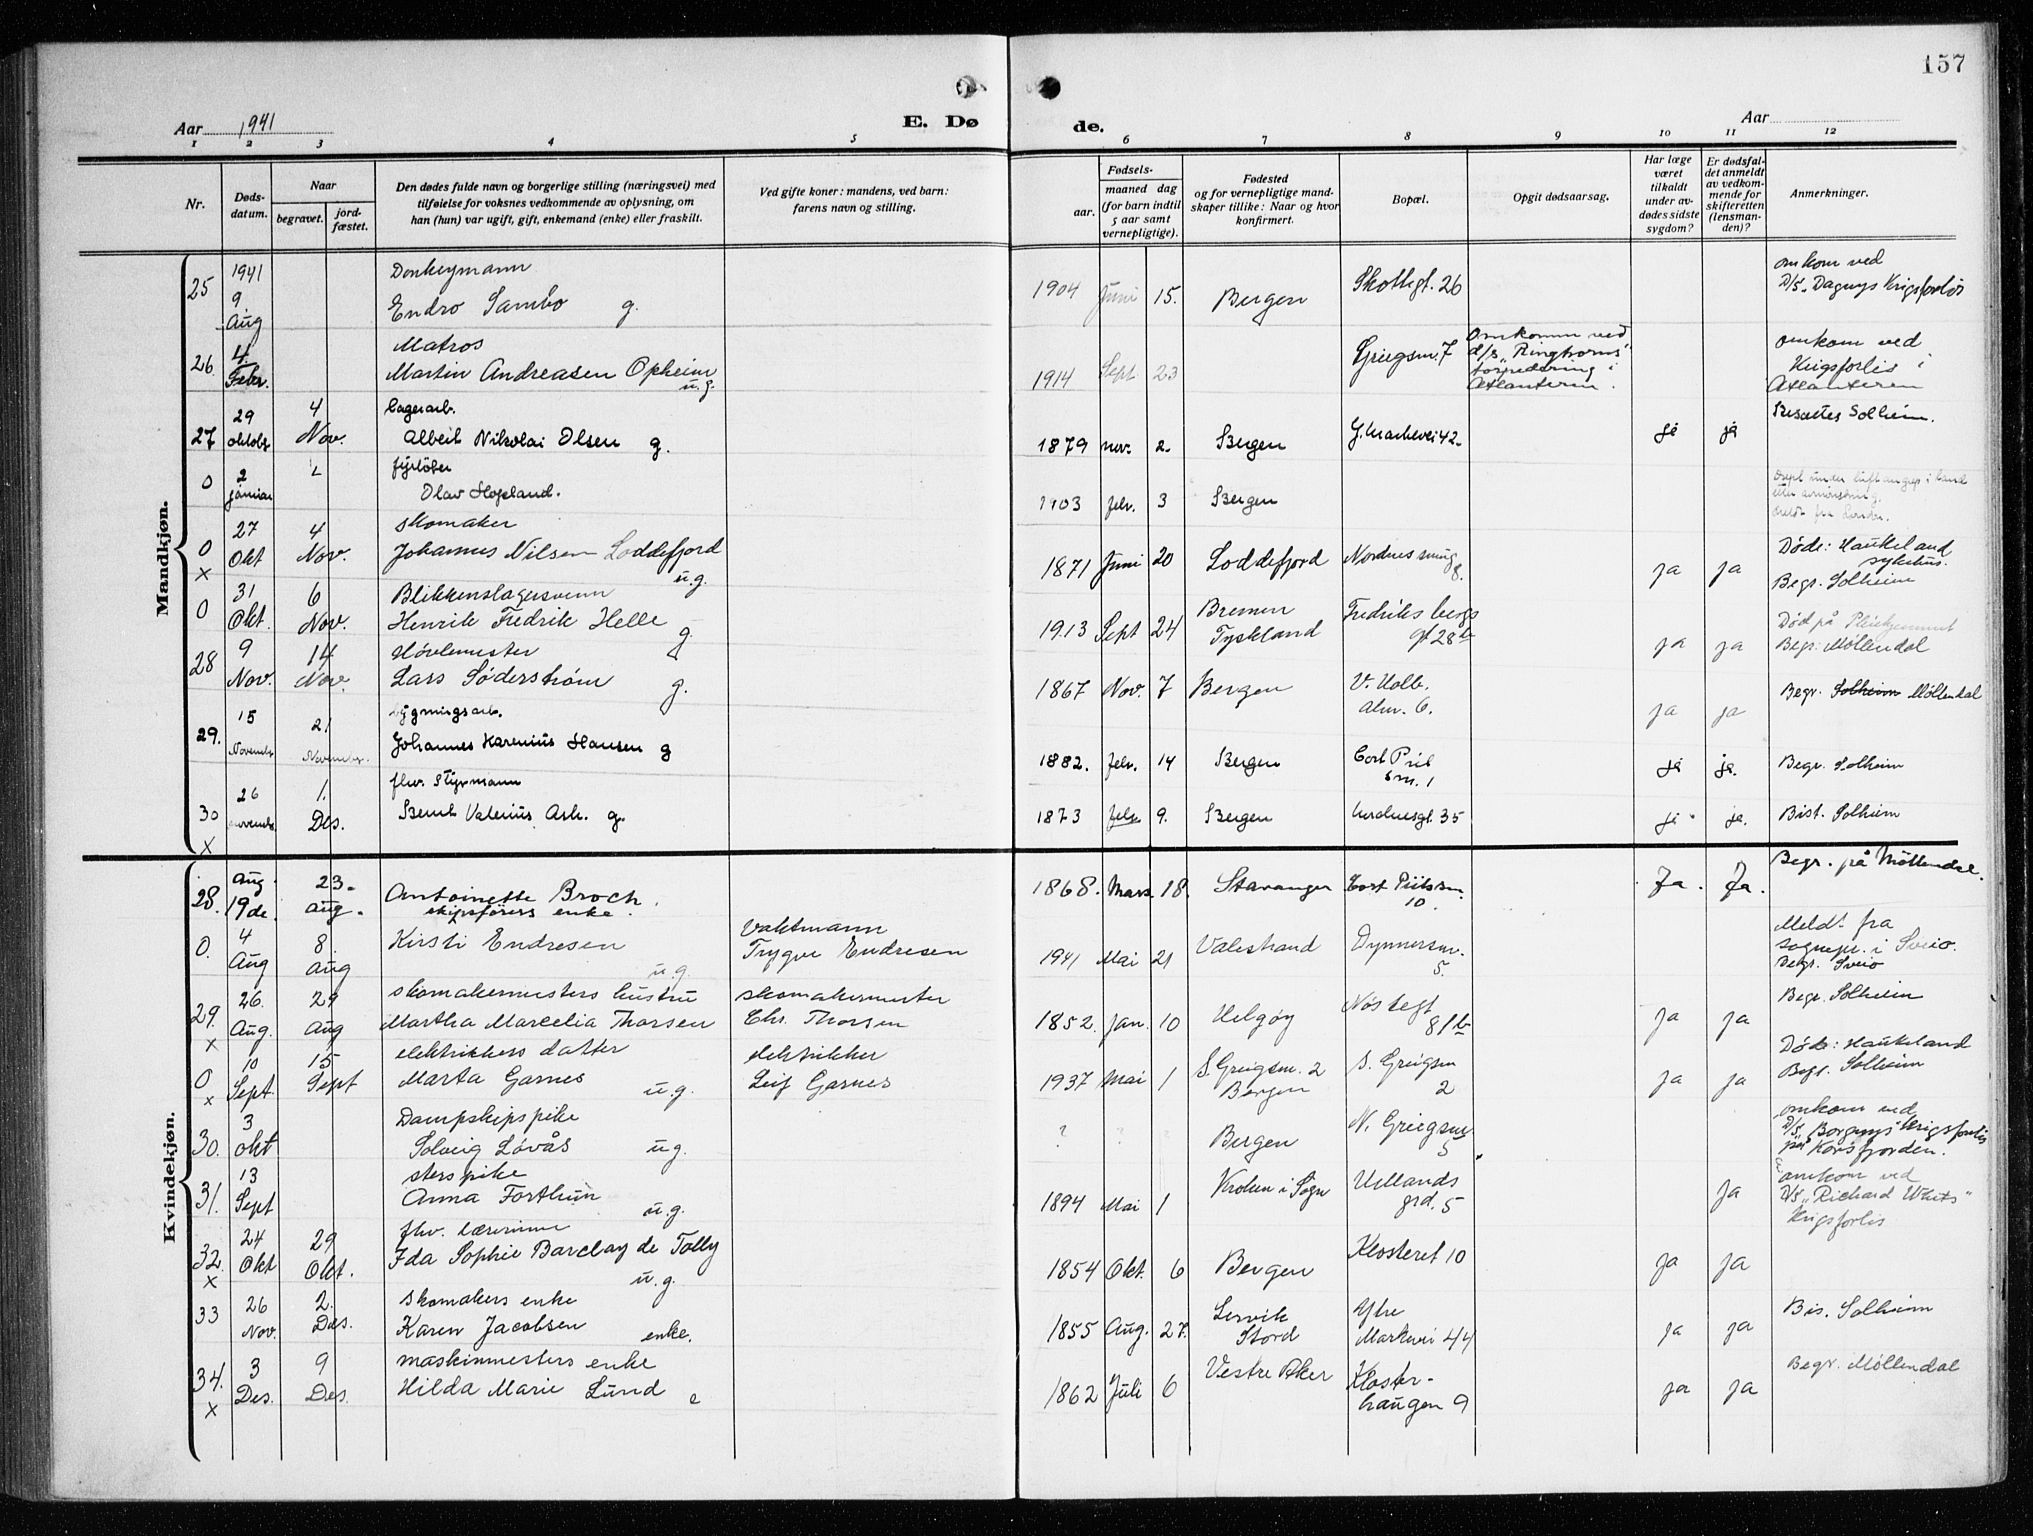 157
Aar 1941
E. Døde.
Aar
1 2 3 4 5 6 7 8 9 10 11 12
Nr.
Døds-
datum.
Naar
begravet.
jord-
fæstet.
Den dødes fulde navn og borgerlige stilling (næringsvei) med
tilføielse for voksnes vedkommende av oplysning, om
han (hun) var ugift, gift, enkemand (enke) eller fraskilt.
Ved gifte koner: mandens, ved barn:
farens navn og stilling.
Fødsels-
aar.
maaned dag
(for barn indtil
5 aar samt
vernepligtige).
Fødested
og for vernepligtige mand-
skaper tillike: Naar og hvor
konfirmert.
Bopæl.
Opgit dødsaarsag.
Har læge
været
tilkaldt
under av-
dødes sidste
sygdom?
Er dødsfal-
det anmeldt
av vedkom-
mende for
skifteretten
(lensman-
den)?
Anmerkninger.
Mandkjøn.
25 1941 9 Aug Donkeymann Endro Sambo g. 1904 Juni 15. Bergen Skottegt. 26 omkom ved D/S „Dagnys Krigsforlis
26. 4. Febr. Matros Martin Andreasen Opheim u.g. 1914 Sept 23 Griegsm. 7 Omkomm ved d/s „Ringhorns" torpedering i Atlanteren. omkom ved Krigsforlis i Atlanteren
27 29 oktobr 4 Nov. Lagerarb. Albert Nikolai Olsen g. 1879 nov. 2. Bergen Y. Markevei 42. ja ja Bisættes Solheim.
0 2 januar fyrbøter Olav Hopland. 1903 febr. 3 Bergen
0 x 27 Okt 4 Nov. skomaker Johannes Nilsen Loddefjord u.g. 1871 Juni 20 Loddefjord Nordnessmug 8. ja ja Døde: Haukeland sykehus. Begr. Solheim
0 31 Okt. 6 Nov. Blikkenslagersvenn Henrik Fredrik Helle g. 1913 Sept 24 Bremen Tyskland Fredriksbergs gt 28 b ja ja Død på Pleiehjemmet Begr. Møllendal
28 9 Nov. 14 Nov. Høvlemester Lars Söderström g. 1867 Nov. 7 Bergen V. Holb. alm. 6. ja ja Begr. Solheim Møllendal
29. 15 Novembr 21 Novembr. bygningsarb. Johannes Karenius Hansen g 1882. febr. 14 Bergen Cort Piil sm. 1 ja ja. Begr. Solheim
30 x 26 novembr. 1. Des. fhv. Styrmann Bernt Valerius Ask. g. 1873 febr 9. Bergen Nordnesgt. 35 ja ja. Bist. Solheim
Kvindekjøn.
28. Aug. 19de. 23. aug. Antoinette Broch. skipsførers enke. 1868. Mars. 18. Stavanger Cort Piilssm. 10. Ja. Ja. Begr. på Møllendal.
0. 4 Aug 8. aug Kirsti Endresen u.g. Vaktmann Trygve Endresen 1941 Mai 21 Valestrand Dynnersm. 5. Meldt fra sognepr. i Sveio. Begr. Sveio
29. x 26. Aug. 29 Aug skomakermesters hustru Martha Marcelia Thorsen skomakermester Chr. Thorsen 1852. Jan. 10 Helgøy Nøstegt 81 b ja ja Begr. Solheim
0 x 10 Sept. 15 Sept elektrikkers datter Marta Garnes u.g. elektrikker Leif Garnes 1937 Mai 1 S. Griegsm. 2 Bergen S. Griegsm 2 ja ja Døde: Haukeland Begr. Solheim
30. 3 okt Dampskipspike Solveig Løvås u.g. ? Bergen N. Griegsm 5. omkom ved D/S „Borgnys" Krigsforlis på Korsfjorden.
31. 13 Sept Anna Forthun u.g. 1894 Mai 1 Kroken i Sogn Uellands grd. 5 ja omkom ved D/S „Richard Whits" Krigsforlis
32. x 24 Okt 29 Okt. fhv. lærerinne Ida Sophie Barclay de Tolly u.g. 1854 Okt. 6 Bergen Klosteret 10 ja ja
33 26 Nov. 2. Des. skomakers enke Karen Jacobsen enke. 1855 Aug. 27. Lervik Stord Ytre Markevei 44 ja ja Bis. Solheim
34. x 3 Des. 9 Des. maskinmesters enke Hilda Marie Lund e 1862 Juli 6 Vestre Aker Kloster-haugen 9 ja ja Begr. Møllendal